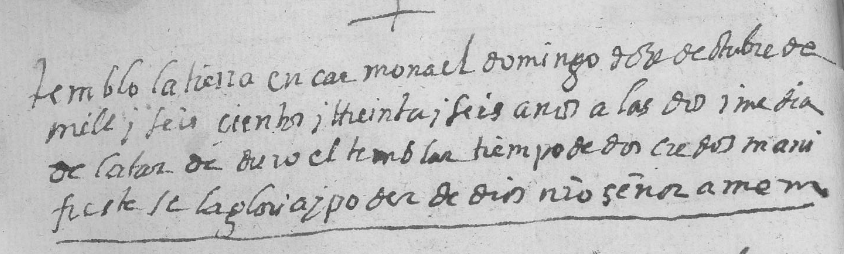 temblo la tierra en car mona el domingo doze de otubre de
mill j seis cientos j treinta j seis anos a las dos j media
de la tar de duro el temblar tiempo de dos credos mani
fieste se la gloria j poder de dios nro señor amem